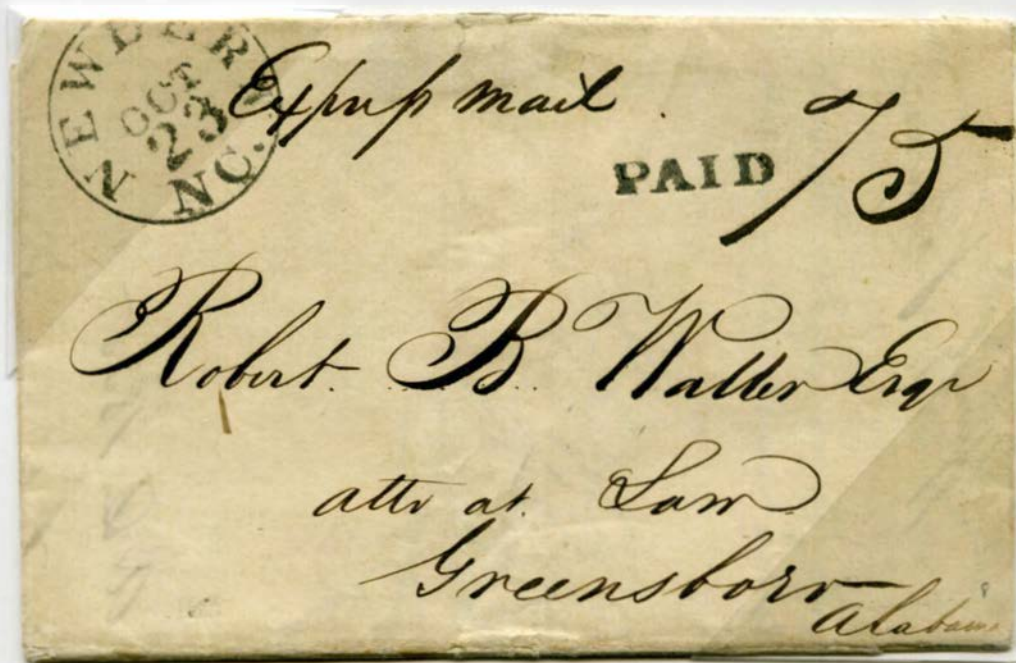 NEWBERN
OCT
23
NC.
Express mail
PAID 75
Robert. B. Waller Esqr
atto at. Law
Greensboro
Alabama